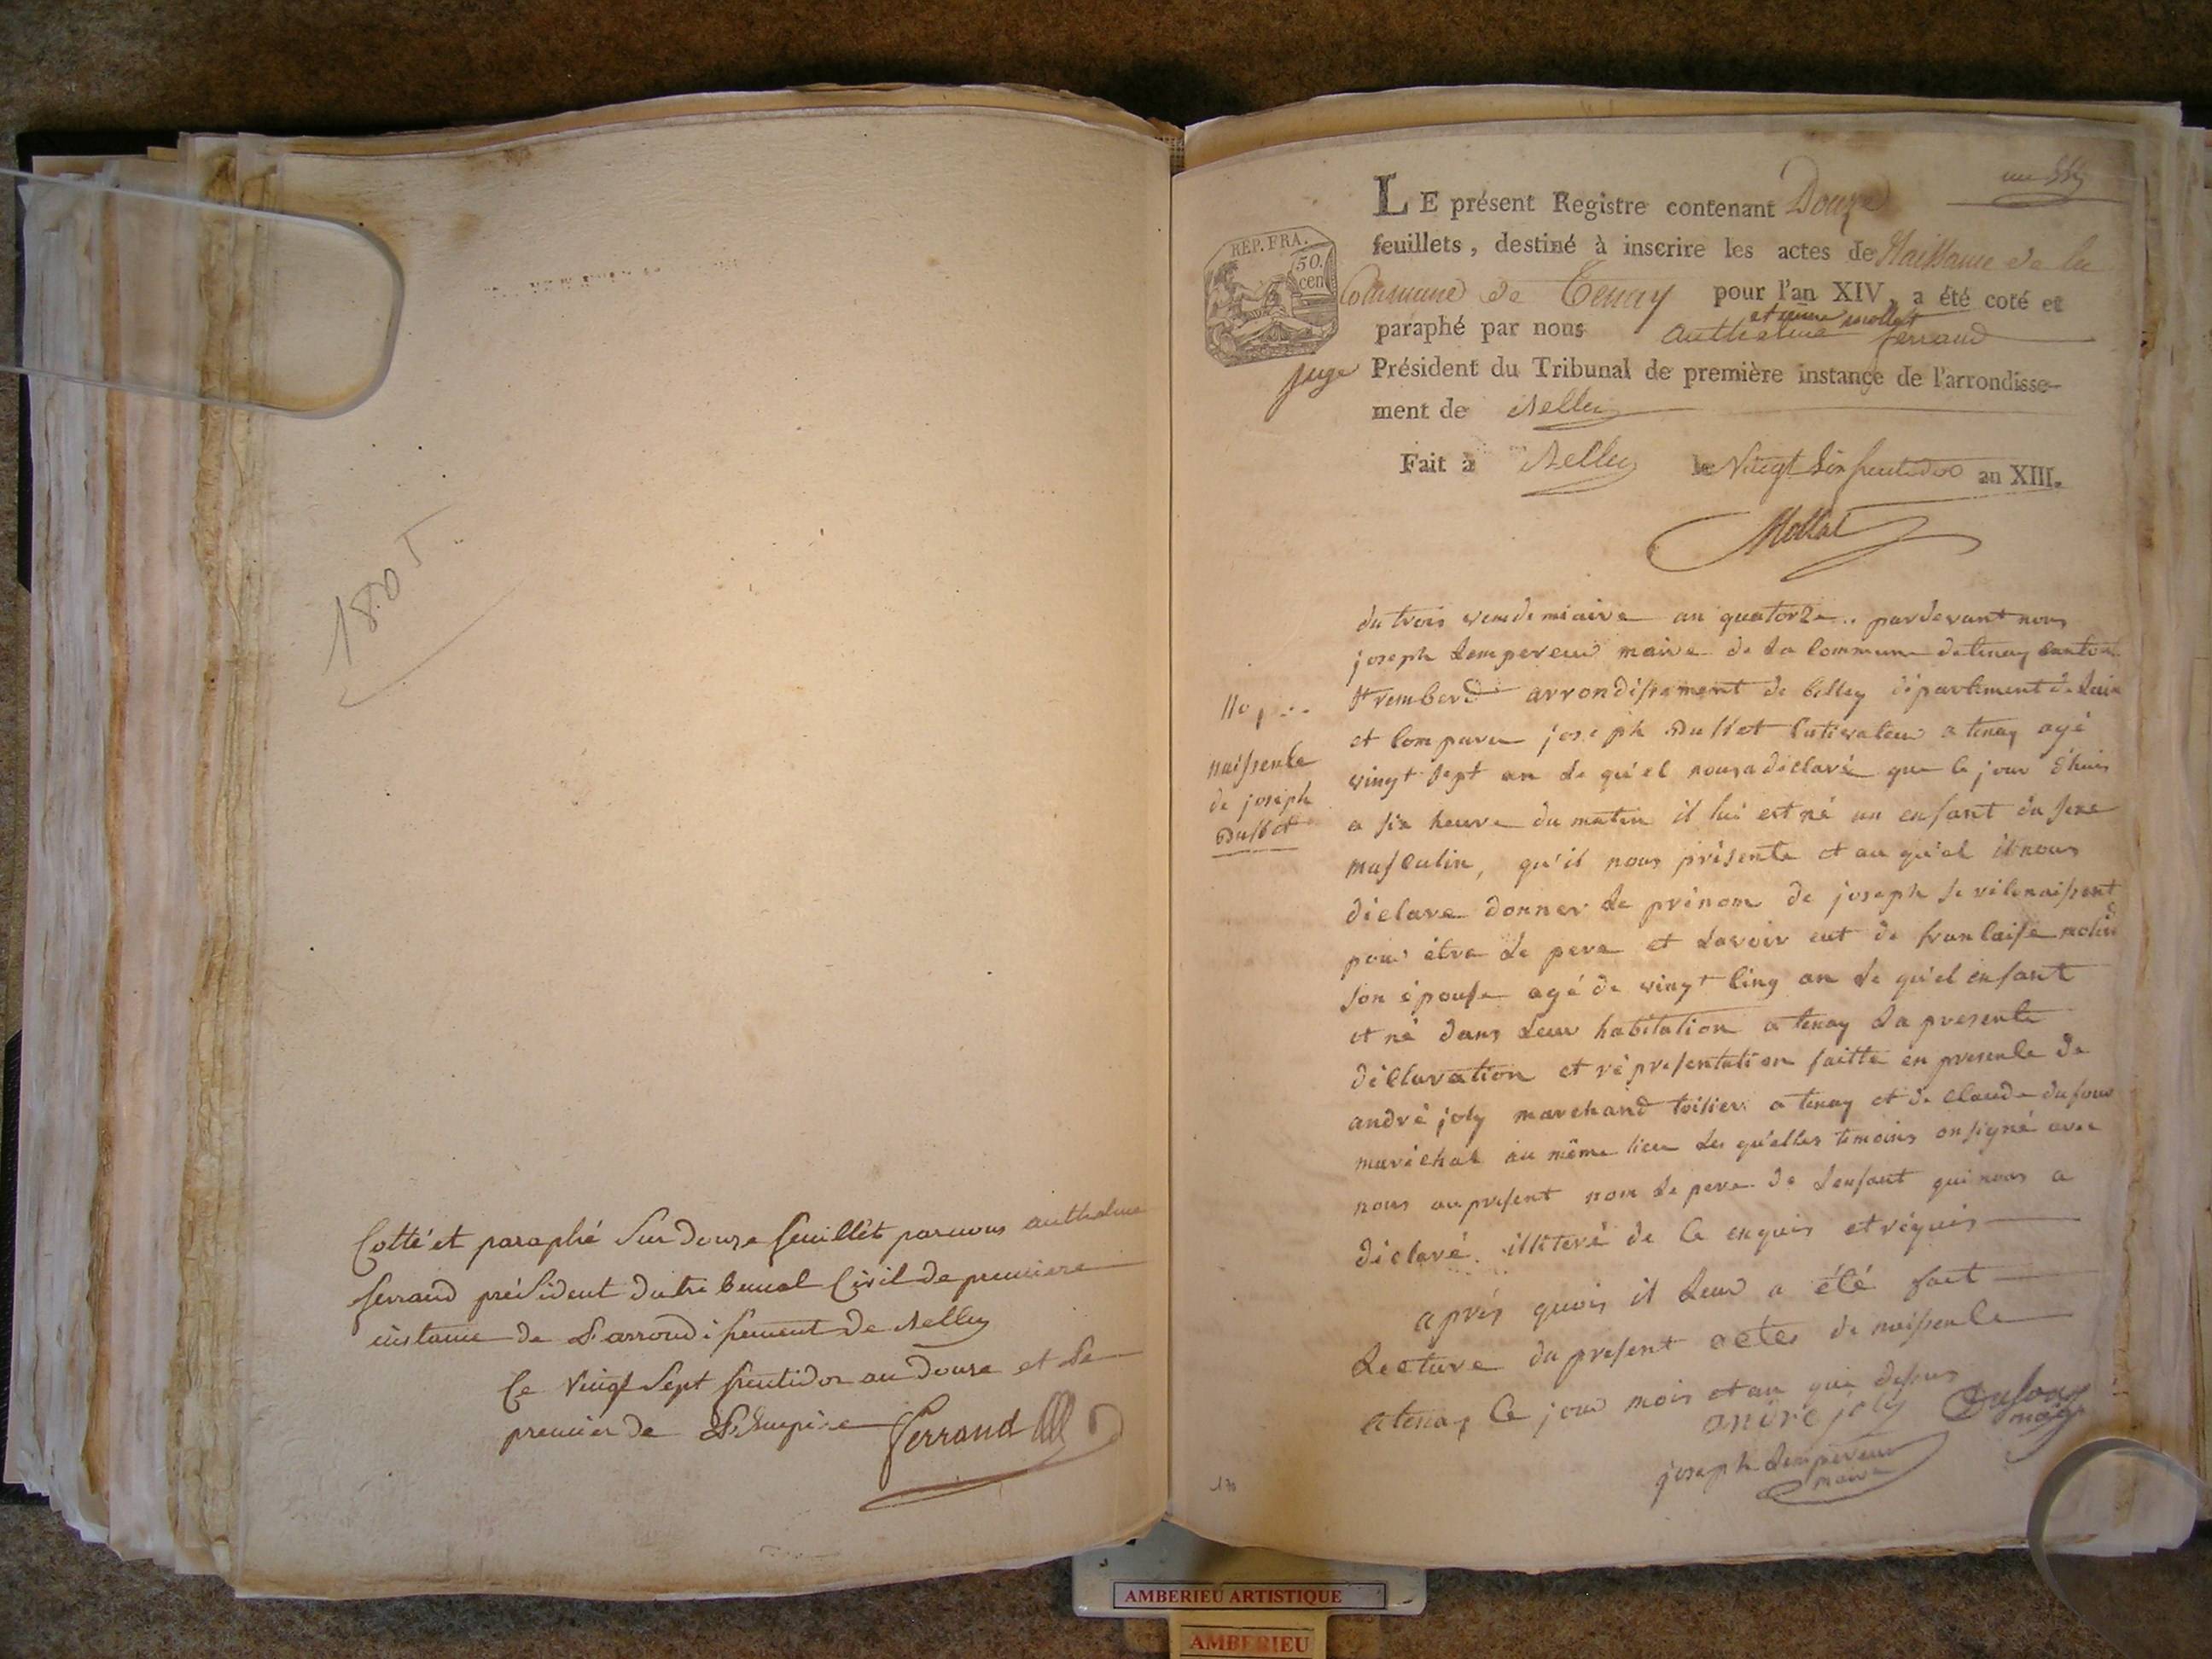 1805
Cotté et paraphé Sur douze feuillet par nous anthelme
ferrand président du tribunal Civil de premiere
instance de L'arrondissement de Belley
Ce vingt Sept fructidor an douze et Le
premier de L'Empire Ferrand
LE présent Registre contenant Douze
feuillets, destiné à inscrire les actes de Naissance de la
Commune de Tenay pour l'an XIV, a été coté et
etienne mollet
paraphé par nous anthelme ferrand
juge Président du Tribunal de première instance de l'arrondisse-
ment de Belley
Fait à Belley le Vingt Six fructidor an XIII.
Mollet
REP. FRA.
50.
cen
du trois vendemiaire an quatorze.. pardevant nous
joseph Lempereur maire de La Commune de tenay Canton
St rembert arrondissement de belley département de Lain
et Comparu joseph Duffet Cutivateur a tenay agé
vingt sept an Le qu'el nous a déclaré que le jour d'huis
a six heure du matin il lui est né un enfant du sexe
masculin, qu'il nous présente et au qu'el il nous
déclare donner Le prénom de joseph se réconaissent
pour étre Le pere et Lavoir eut de francaise molin
son épouse agé de vingt Cinq an Le qu'el enfant
et né dans Leur habitation a tenay La presente
déclaration et réprésentation faitte en presence de
andré joly marchand toilier a tenay et de Claude dufour
maréchal au même lieu Les qu'elles temoins on signé avec
nous au present non Le pere de Lenfant qui nous a
déclaré illiteré de Ce enquis et réquis
aprés quois il Leur a été fait
Lecture du present acte de naissence
a tenay Ce jour mois et an que dessus
andré joly Dufour
joseph Lempereur
maire
naissence
de joseph
Duffet
130
AMBERIEU ARTISTIQUE
AMBERIEU